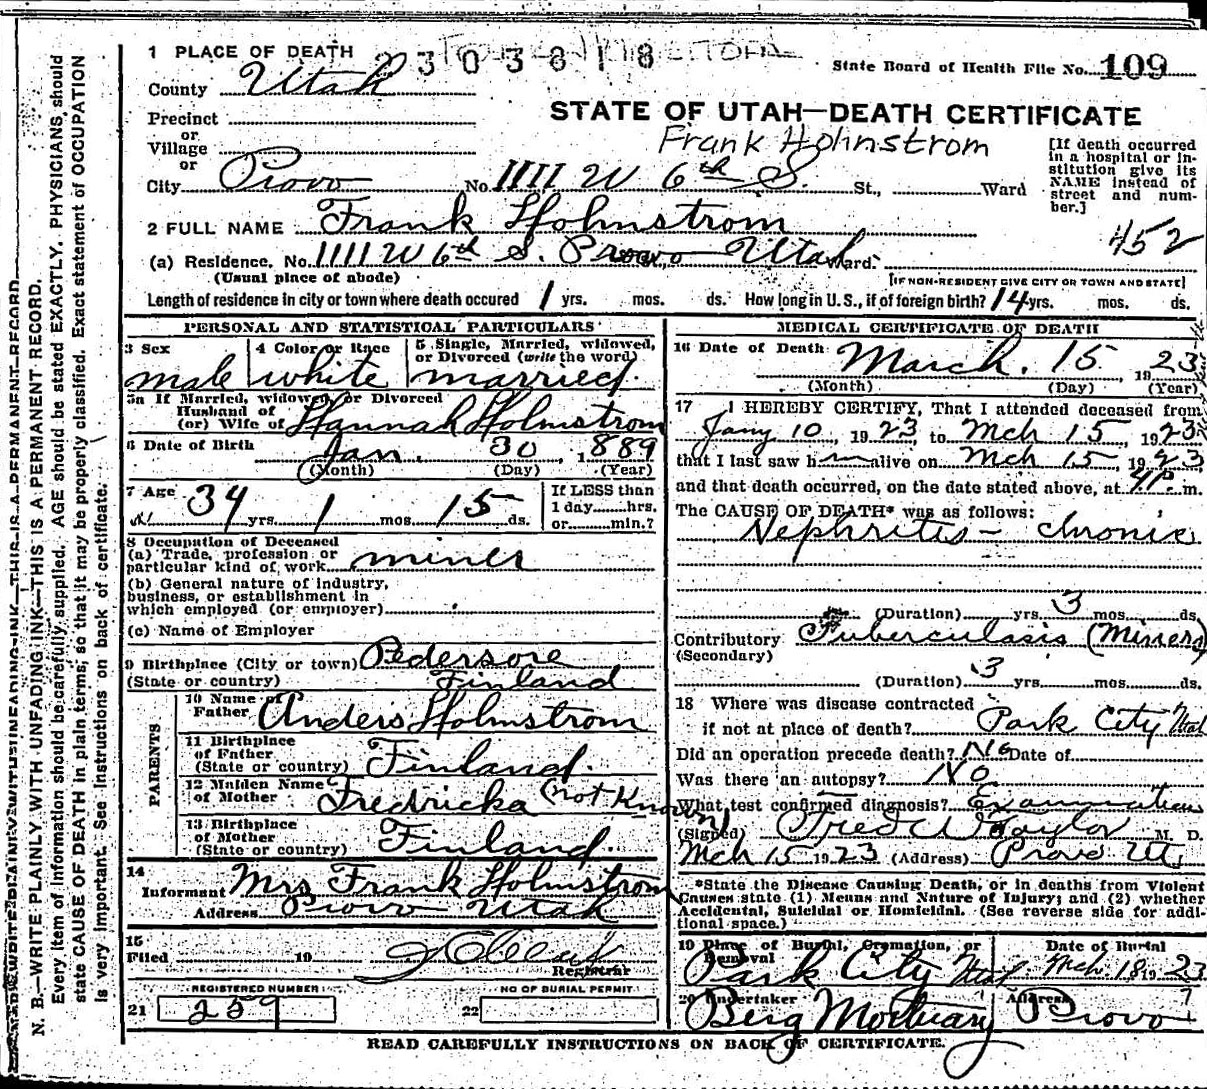 1 PLACE OF DEATH 2303818
State Board of Health File No. 109
County Utah
STATE OF UTAH—DEATH CERTIFICATE
Precinct
or
Village
or
Frank Holmstrom
City Provo No. 1111 W 6th S. St., Ward
[If death occurred
in a hospital or in-
stitution give its
NAME instead of
street and num-
ber.]
2 FULL NAME Frank Holmstrom
452
(a) Residence. No. 1111 W 6th S. Provo Utah Ward.
(Usual place of abode)
[IF NON-RESIDENT GIVE CITY OR TOWN AND STATE]
Length of residence in city or town where death occured 1 yrs. mos. ds. How long in U.S., if of foreign birth? 14 yrs. mos. ds.
PERSONAL AND STATISTICAL PARTICULARS
3 Sex male
4 Color or Race white
5 Single, Married, widowed,
or Divorced (write the word)
married.
5a If Married, widowed, or Divorced
Husband of
(or) Wife of Hannah Holmstrom
6 Date of Birth Jan. 30, 1889
(Month) (Day) (Year)
7 Age 34 yrs. 1 mos. 15 ds.
If LESS than
1 day hrs.
or min.?
8 Occupation of Deceased
(a) Trade, profession or
particular kind of work miner
(b) General nature of industry,
business, or establishment in
which employed (or employer)
(c) Name of Employer
9 Birthplace (City or town) Pedersore
(State or country) Finland
PARENTS
10 Name of
Father Anders Holmstrom
11 Birthplace
of Father
(State or country) Finland.
12 Maiden Name
of Mother Fredricka (not Known)
13 Birthplace
of Mother
(State or country) Finland.
14
Informant Mrs Frank Holmstrom
Address Provo Utah
15
Filed 19
Registrar
REGISTERED NUMBER
21 259
NO OF BURIAL PERMIT
22
MEDICAL CERTIFICATE OF DEATH
16 Date of Death March. 15 1923
(Month) (Day) (Year)
17 I HEREBY CERTIFY, That I attended deceased from
Jany 10, 1923, to Mch 15, 1923
that I last saw h im alive on Mch 15, 1923
and that death occurred, on the date stated above, at 4P. m.
The CAUSE OF DEATH* was as follows:
Nephrites - chronic
(Duration) yrs. 3 mos. ds.
Contributory Tuberculasis (Miners)
(Secondary)
(Duration) 3 yrs. mos. ds.
18 Where was disease contracted
if not at place of death? Park City Utah
Did an operation precede death? No Date of
Was there an autopsy? No
What test confirmed diagnosis? Examination
(Signed) Fred W Taylor M. D.
Mch 15 1923 (Address) Provo Ut
*State the Disease Causing Death, or in deaths from Violent
Causes state (1) Means and Nature of Injury; and (2) whether
Accidental, Suicidal or Homicidal. (See reverse side for addi-
tional space.)
19 Place of Burial, Cremation, or
Removal
Park City Utah
Date of Burial
Mch 18 1923
20 Undertaker
Berg Mortuary
Address
Provo
READ CAREFULLY INSTRUCTIONS ON BACK OF CERTIFICATE.
N. B.—WRITE PLAINLY WITH UNFADING INK—THIS IS A PERMANENT RECORD.
Every item of information should be carefully supplied. AGE should be stated EXACTLY. PHYSICIANS should
state CAUSE OF DEATH in plain terms, so that it may be properly classified. Exact statement of OCCUPATION
is very important. See instructions on back of certificate.